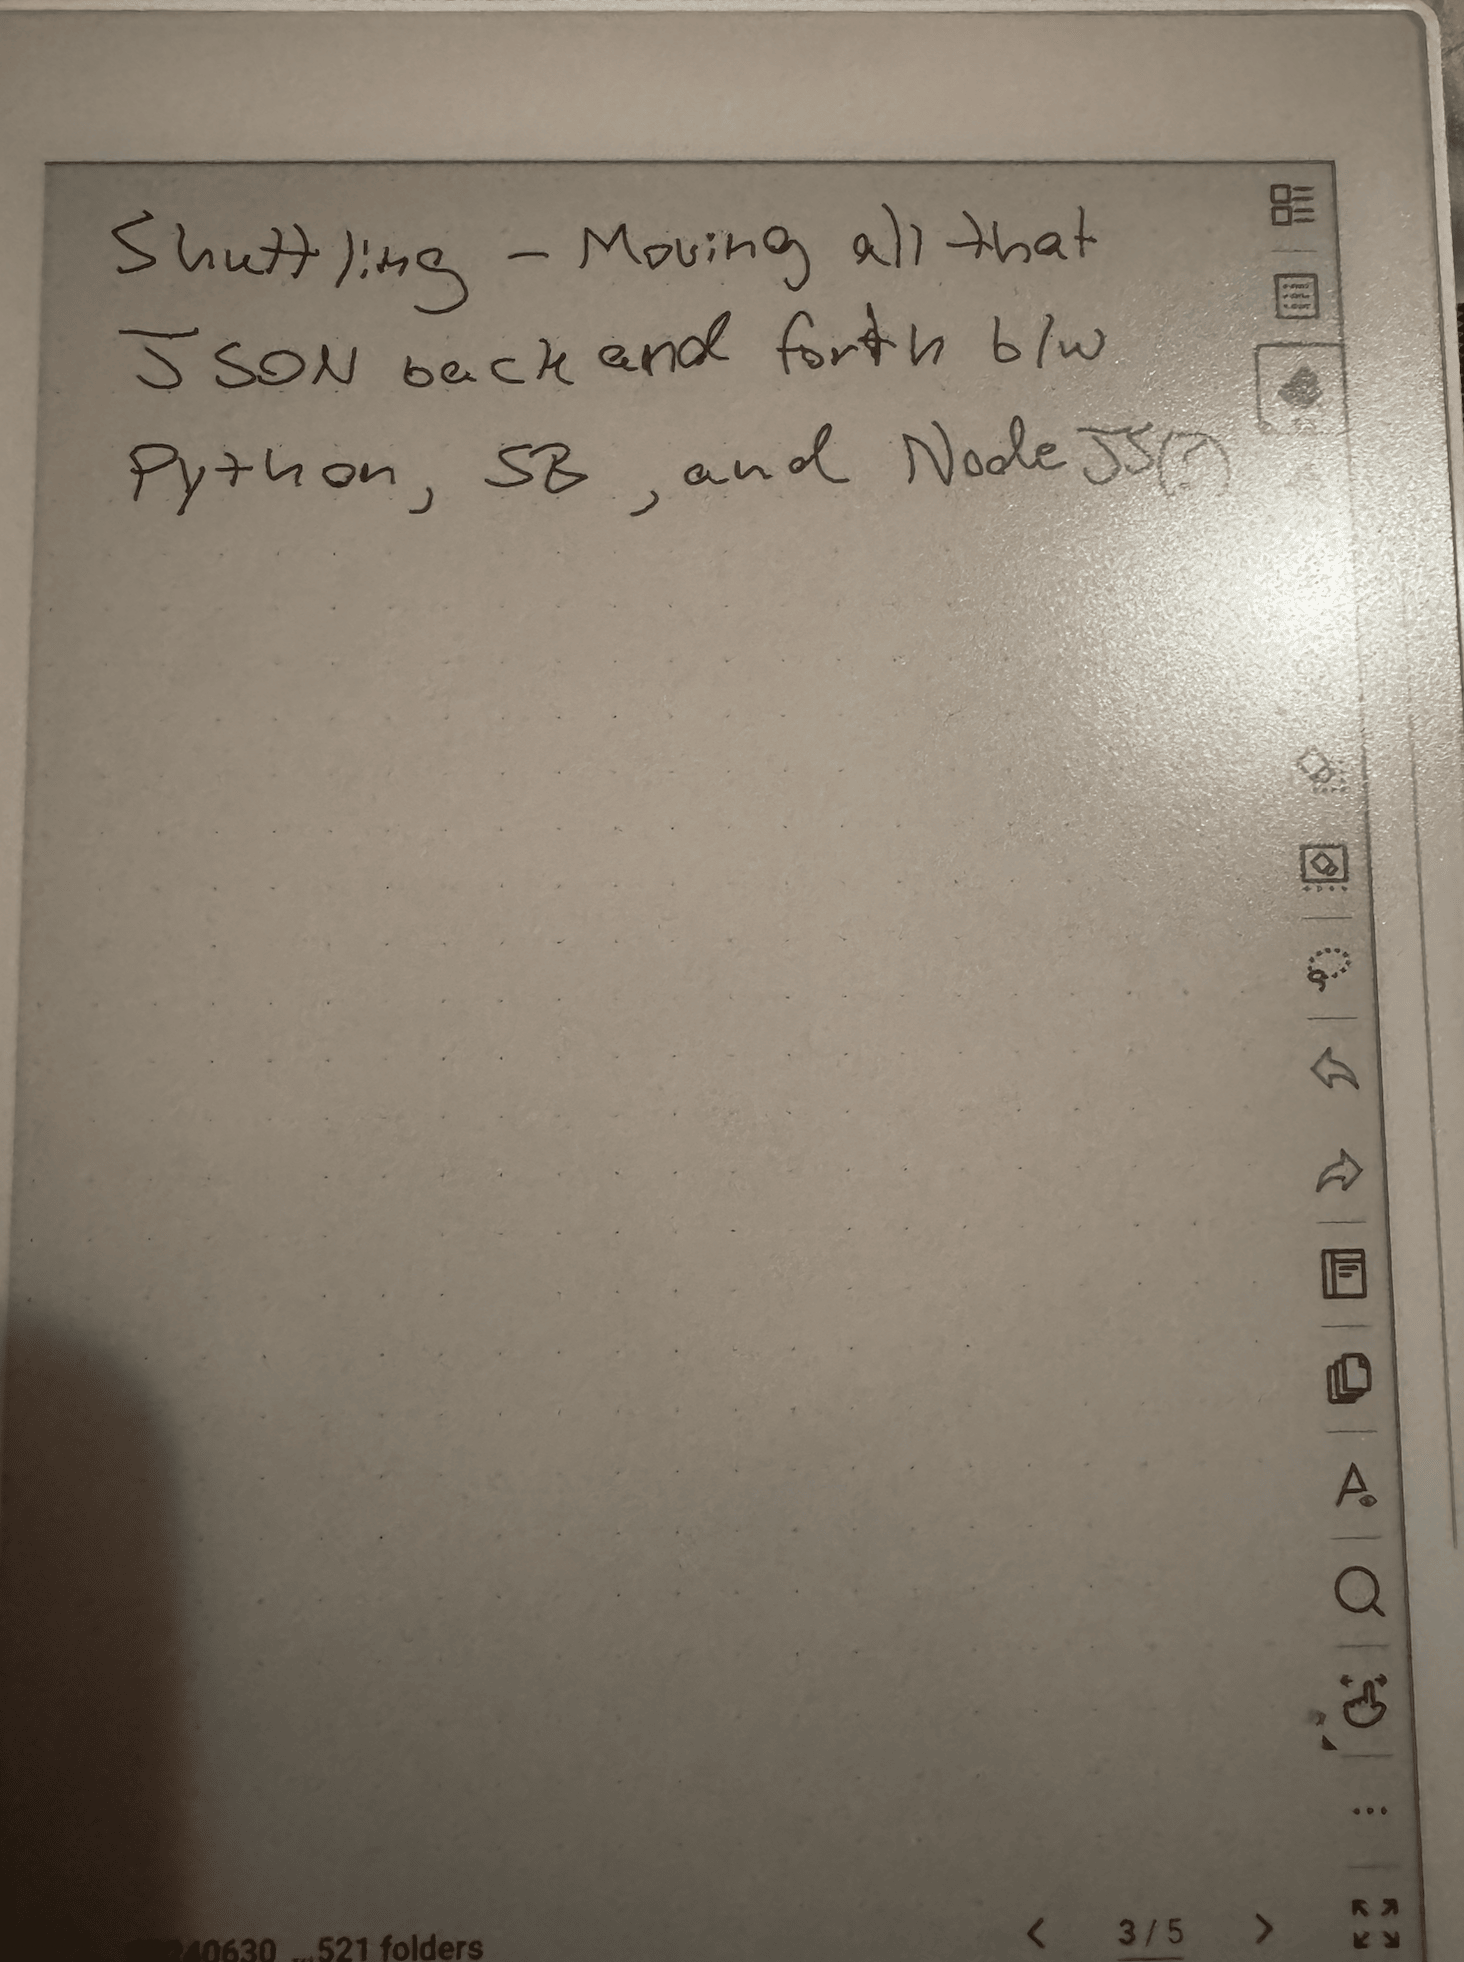 Shuttling - Moving all that
JSON back and forth b/w
Python, SB, and Node JS(?)
40630 ...521 folders
< 3/5 >